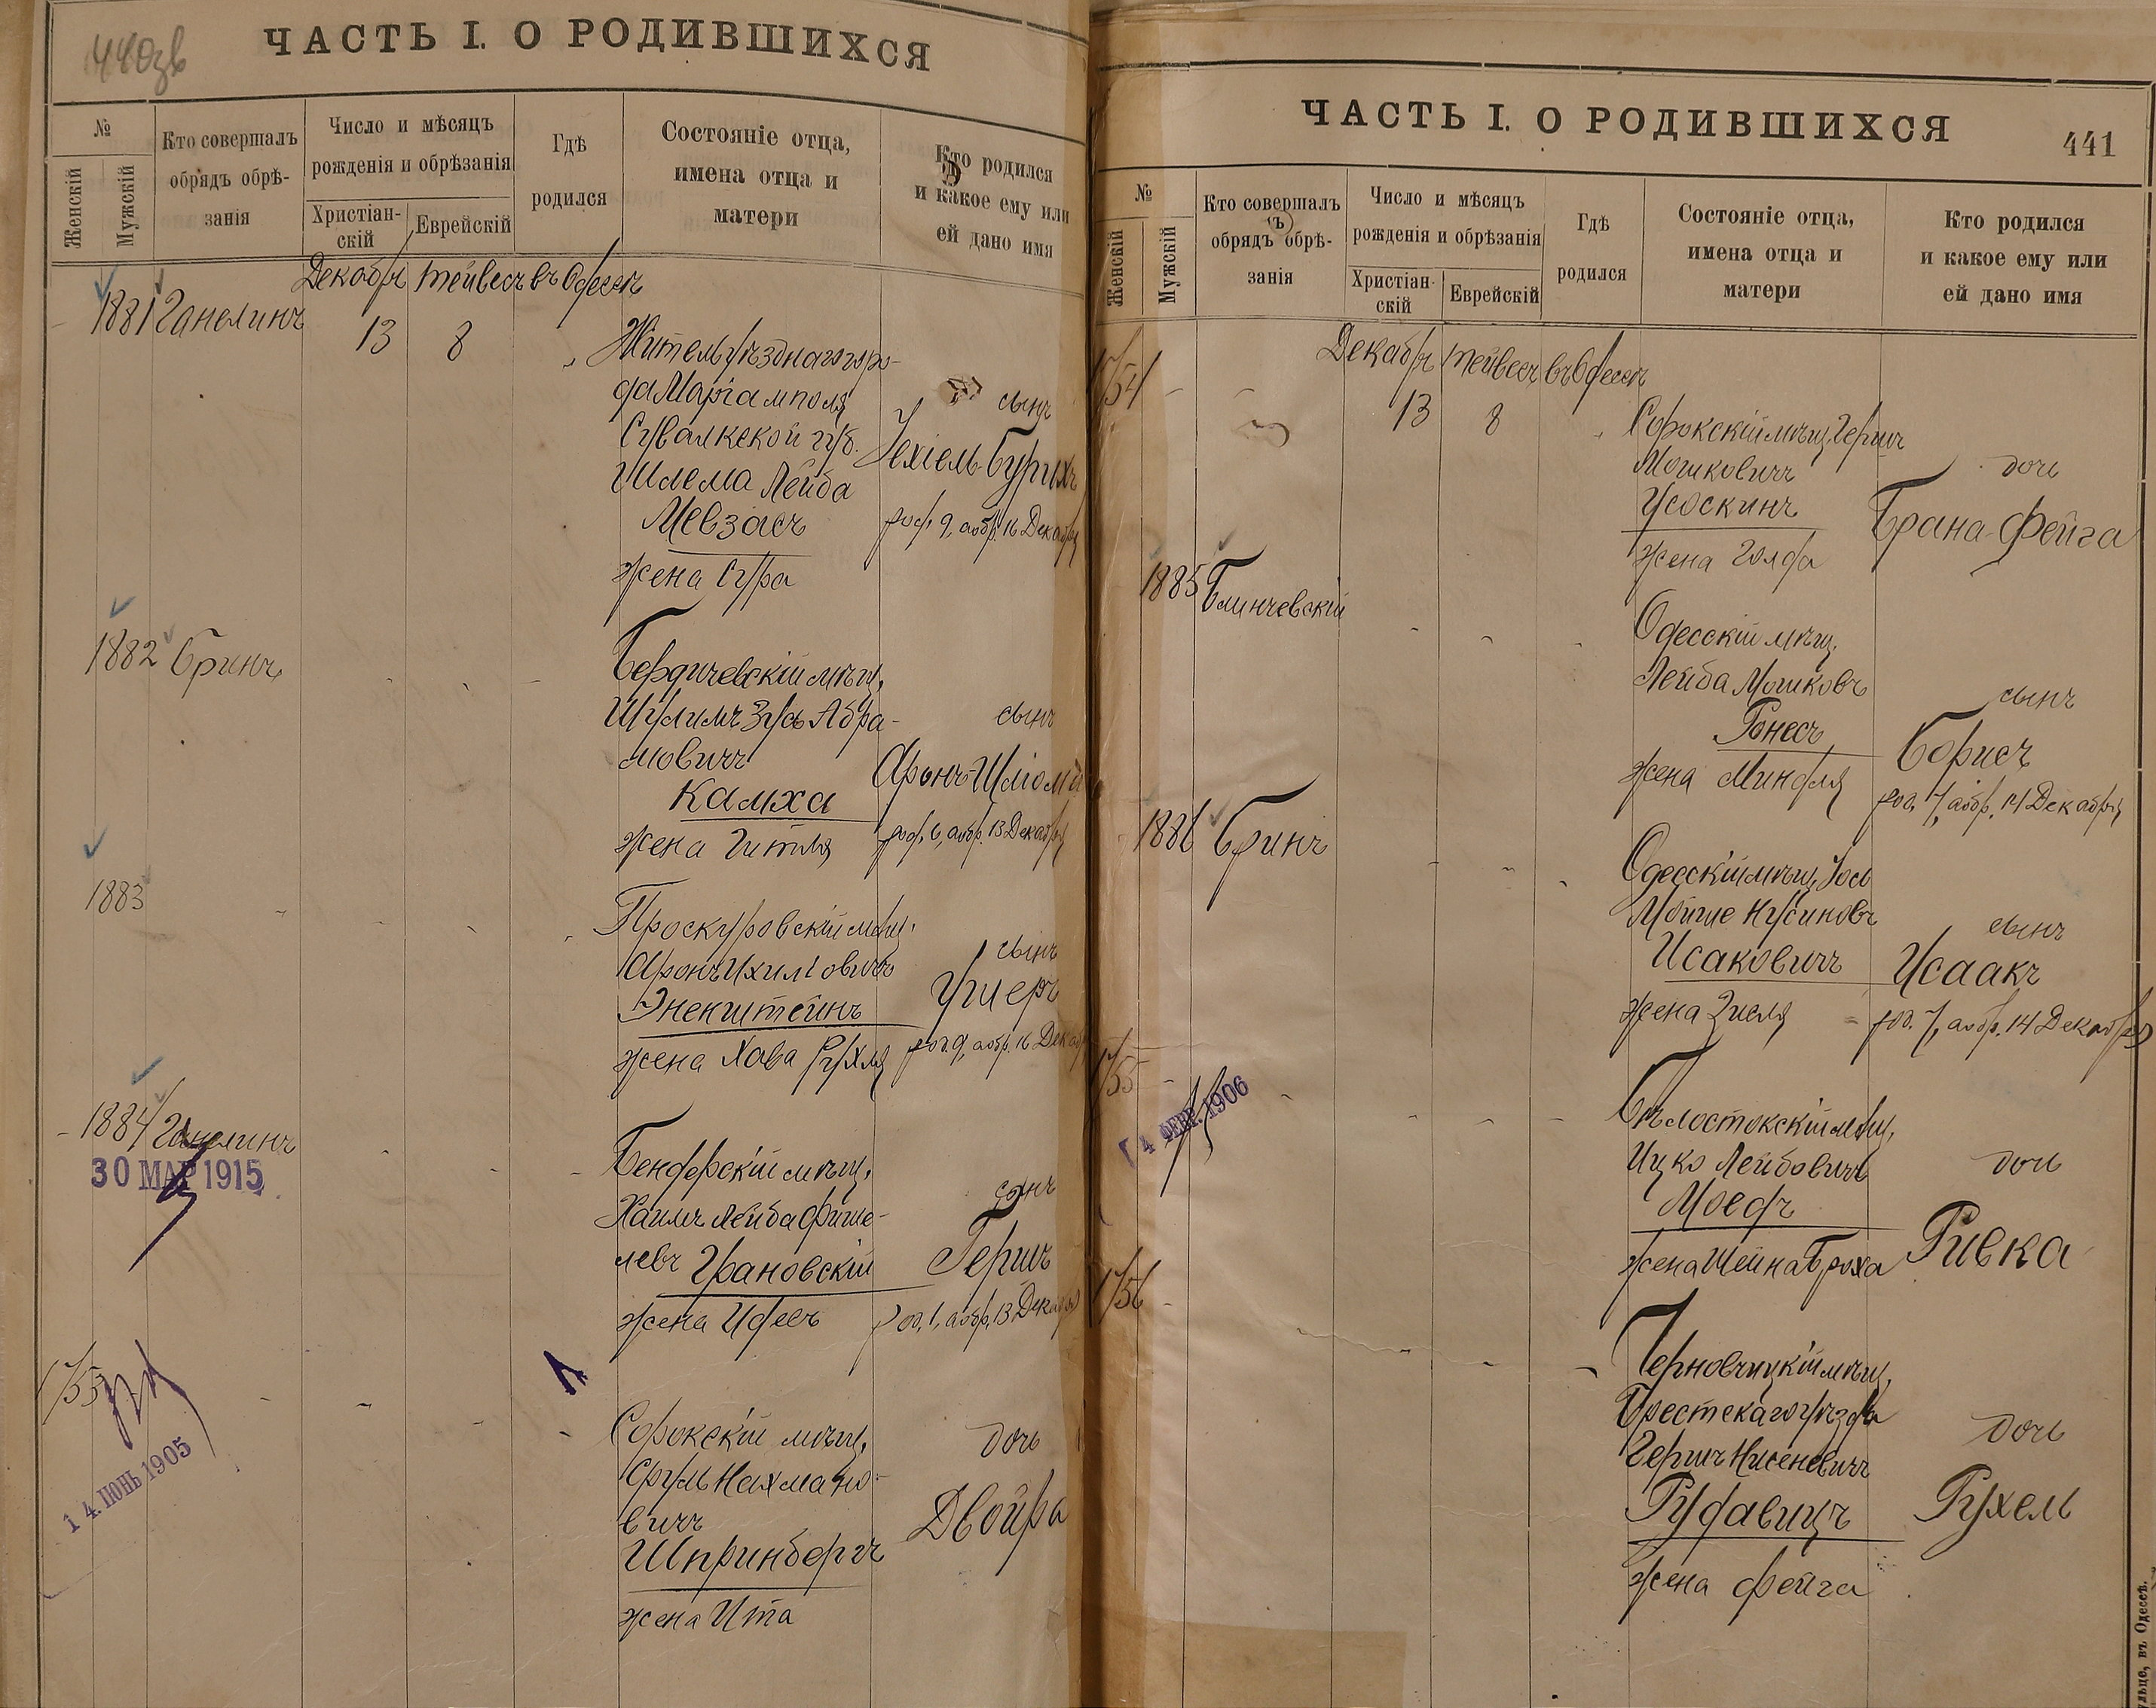 440зв
ЧАСТЬ I. О РОДИВШИХСЯ
№
Женскій
Мужскій
Кто совершалъ
обрядъ обрѣ-
занія
Число и мѣсяцъ
рожденія и обрѣзанія
Христіан-
скій
Еврейскій
Гдѣ
родился
Состояніе отца,
имена отца и
матери
Кто родился
и какое ему или
ей дано имя
Декабрь Тейвесъ въ Одессѣ
1881 Ганелинъ 13 8
Житель уѣзднаго горо-
да Маріамполя
Сувалкской губ.
Шлема Лейба
Мевзасъ
жена Сура
сынъ
Іехіель-Бурихъ
род. 9, а обр. 16 Декабря
1882 Бринъ
Бердичевскій мѣщ.
Шулимъ Зусь Абра-
мовичъ
Калмха
жена Гитля
сынъ
Аронъ-Шліома
род. 6, а обр. 13 Декабря
1883
Проскуровскій мѣщ.
Аронъ Ихиліовичъ
Эненштейнъ
жена Хава Рухля
сынъ
Ушеръ
род. 9, а обр. 16 Декабря
1884 Ганелинъ
30 МАР 1915
Бендерскій мѣщ.
Хаимъ Лейба Фише-
левъ Грановскій
жена Идесъ
сынъ
Гершъ
род. 1, а обр. 13 Декабря
14 ІЮНЬ 1905
Сорокскій мѣщ.
Сруль Нахмано-
вичъ
Шпринбергъ
жена Ита
дочь
Двойра
ЧАСТЬ I. О РОДИВШИХСЯ
441
№
Женскій
Мужскій
Кто совершалъ
обрядъ обрѣ-
занія
Число и мѣсяцъ
рожденія и обрѣзанія
Христіан-
скій
Еврейскій
Гдѣ
родился
Состояніе отца,
имена отца и
матери
Кто родился
и какое ему или
ей дано имя
Декабрь Тейвесъ въ Одессѣ
1754 13 8
Сорокскій мѣщ. Гершъ
Мошковичъ
Усоскинъ
жена Голда
дочь
Брана-Фейга
1885 Блинчевскій
Одесскій мѣщ.
Лейба Мошковъ
Ронесъ
жена Миндля
сынъ
Борисъ
род. 7, а обр. 14 Декабря
1886 Бринъ
Одесскій мѣщ. Іось
Мойше Нусиновъ
Исаковичъ
жена Зисля
сынъ
Исаакъ
род. 7, а обр. 14 Декабря
1755
4 ФЕВР. 1906
Бѣлостокскій мѣщ.
Ицко Лейбовичъ
Моедъ
жена Шейна Броха
дочь
Ривка
1756
Черновчицкій мѣщ.
Брестскаго уѣзда
Гершъ Нисеневичъ
Рудавицъ
жена Фейга
дочь
Рухель
въ Одессѣ.